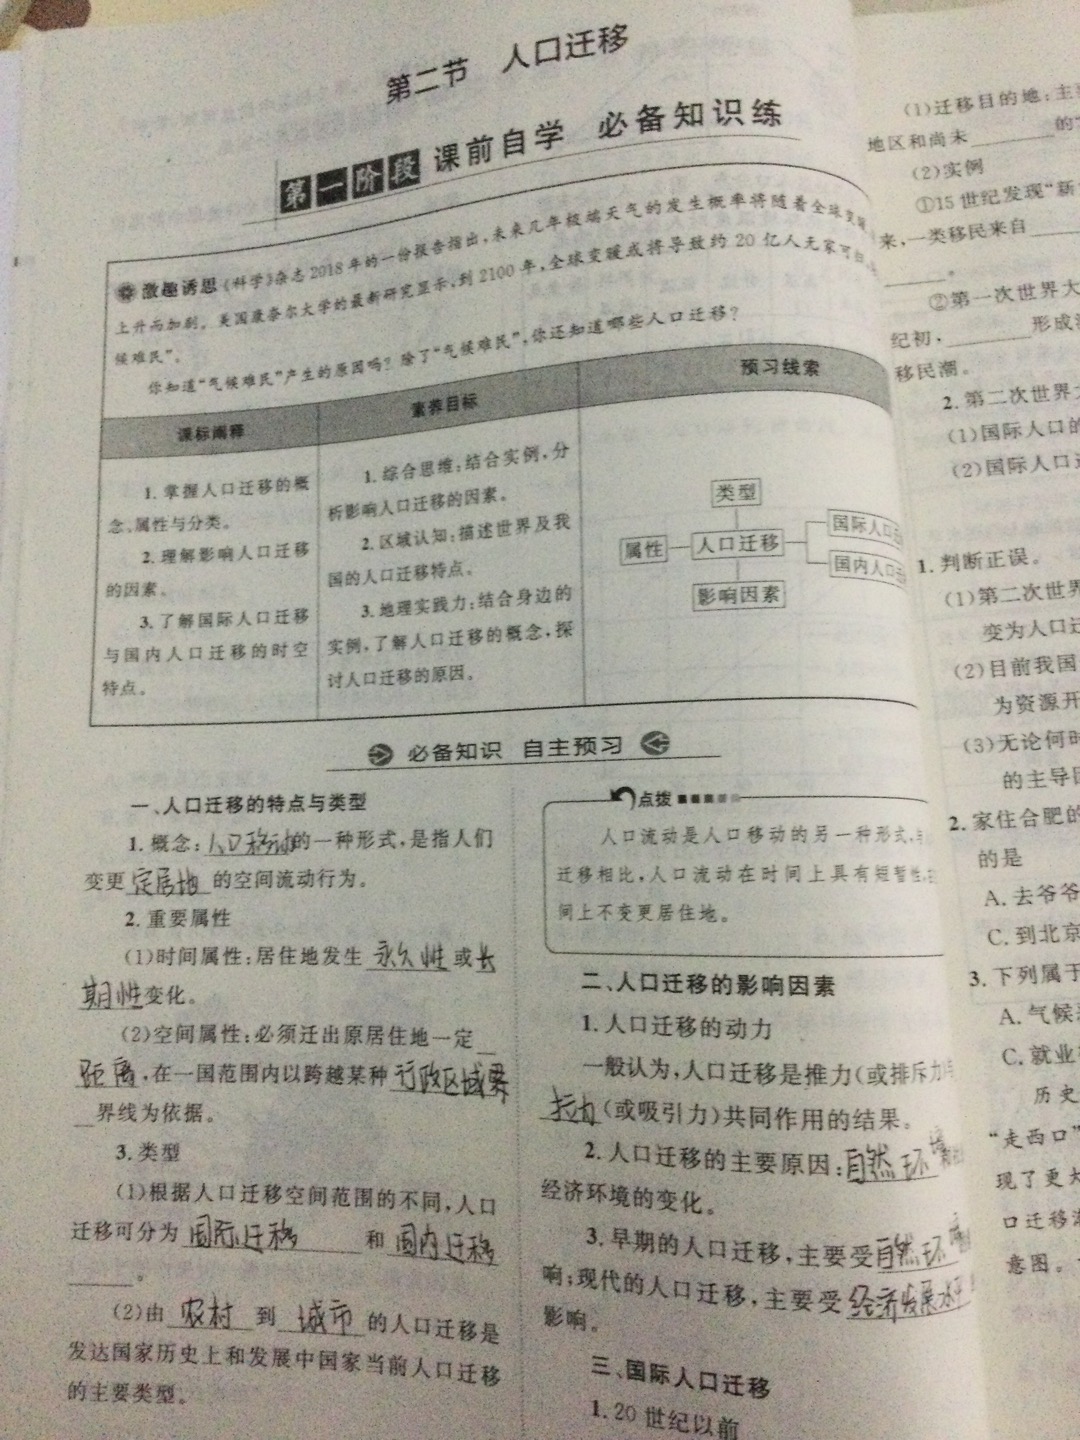 第二节 人口迁移
第一阶段 课前自学 必备知识练
激趣诱思《科学》杂志2018年的一份报告指出,未来几年极端天气的发生概率将随着全球变暖
上升而加剧。美国康奈尔大学的最新研究显示,到2100年,全球变暖或将导致约20亿人无家可归
候难民”。
你知道“气候难民”产生的原因吗?除了“气候难民”,你还知道哪些人口迁移?
课标阐释
素养目标
预习线索
1.掌握人口迁移的概
念、属性与分类。
2.理解影响人口迁移
的因素。
3.了解国际人口迁移
与国内人口迁移的时空
特点。
1.综合思维:结合实例,分
析影响人口迁移的因素。
2.区域认知:描述世界及我
国的人口迁移特点。
3.地理实践力:结合身边的
实例,了解人口迁移的概念,探
讨人口迁移的原因。
类型
属性 人口迁移
国际人口
国内人口
影响因素
必备知识 自主预习
一、人口迁移的特点与类型
1.概念:人口移动的一种形式,是指人们
变更定居地的空间流动行为。
2.重要属性
(1)时间属性:居住地发生永久性或长
期性变化。
(2)空间属性:必须迁出原居住地一定
距离,在一国范围内以跨越某种行政区域界
界线为依据。
3.类型
(1)根据人口迁移空间范围的不同,人口
迁移可分为国际迁移和国内迁移
。
(2)由农村到城市的人口迁移是
发达国家历史上和发展中国家当前人口迁移
的主要类型。
点拨
人口流动是人口移动的另一种形式,与
迁移相比,人口流动在时间上具有短暂性,
间上不变更居住地。
二、人口迁移的影响因素
1.人口迁移的动力
一般认为,人口迁移是推力(或排斥力)与
拉力(或吸引力)共同作用的结果。
2.人口迁移的主要原因:自然环境
经济环境的变化。
3.早期的人口迁移,主要受自然环境
响;现代的人口迁移,主要受经济发展水平
影响。
三、国际人口迁移
1.20世纪以前
(1)迁移目的地:主
地区和尚未 的
(2)实例
①15世纪发现“新
来,一类移民来自
。
②第一次世界大
纪初, 形成
移民潮。
2.第二次世界
(1)国际人口的
(2)国际人口
1.判断正误。
(1)第二次世界
变为人口迁
(2)目前我国
为资源开
(3)无论何时
的主导因
2.家住合肥的
的是
A.去爷爷
C.到北京
3.下列属于
A.气候
C.就业
历史
“走西口”
现了更大
口迁移
意图。